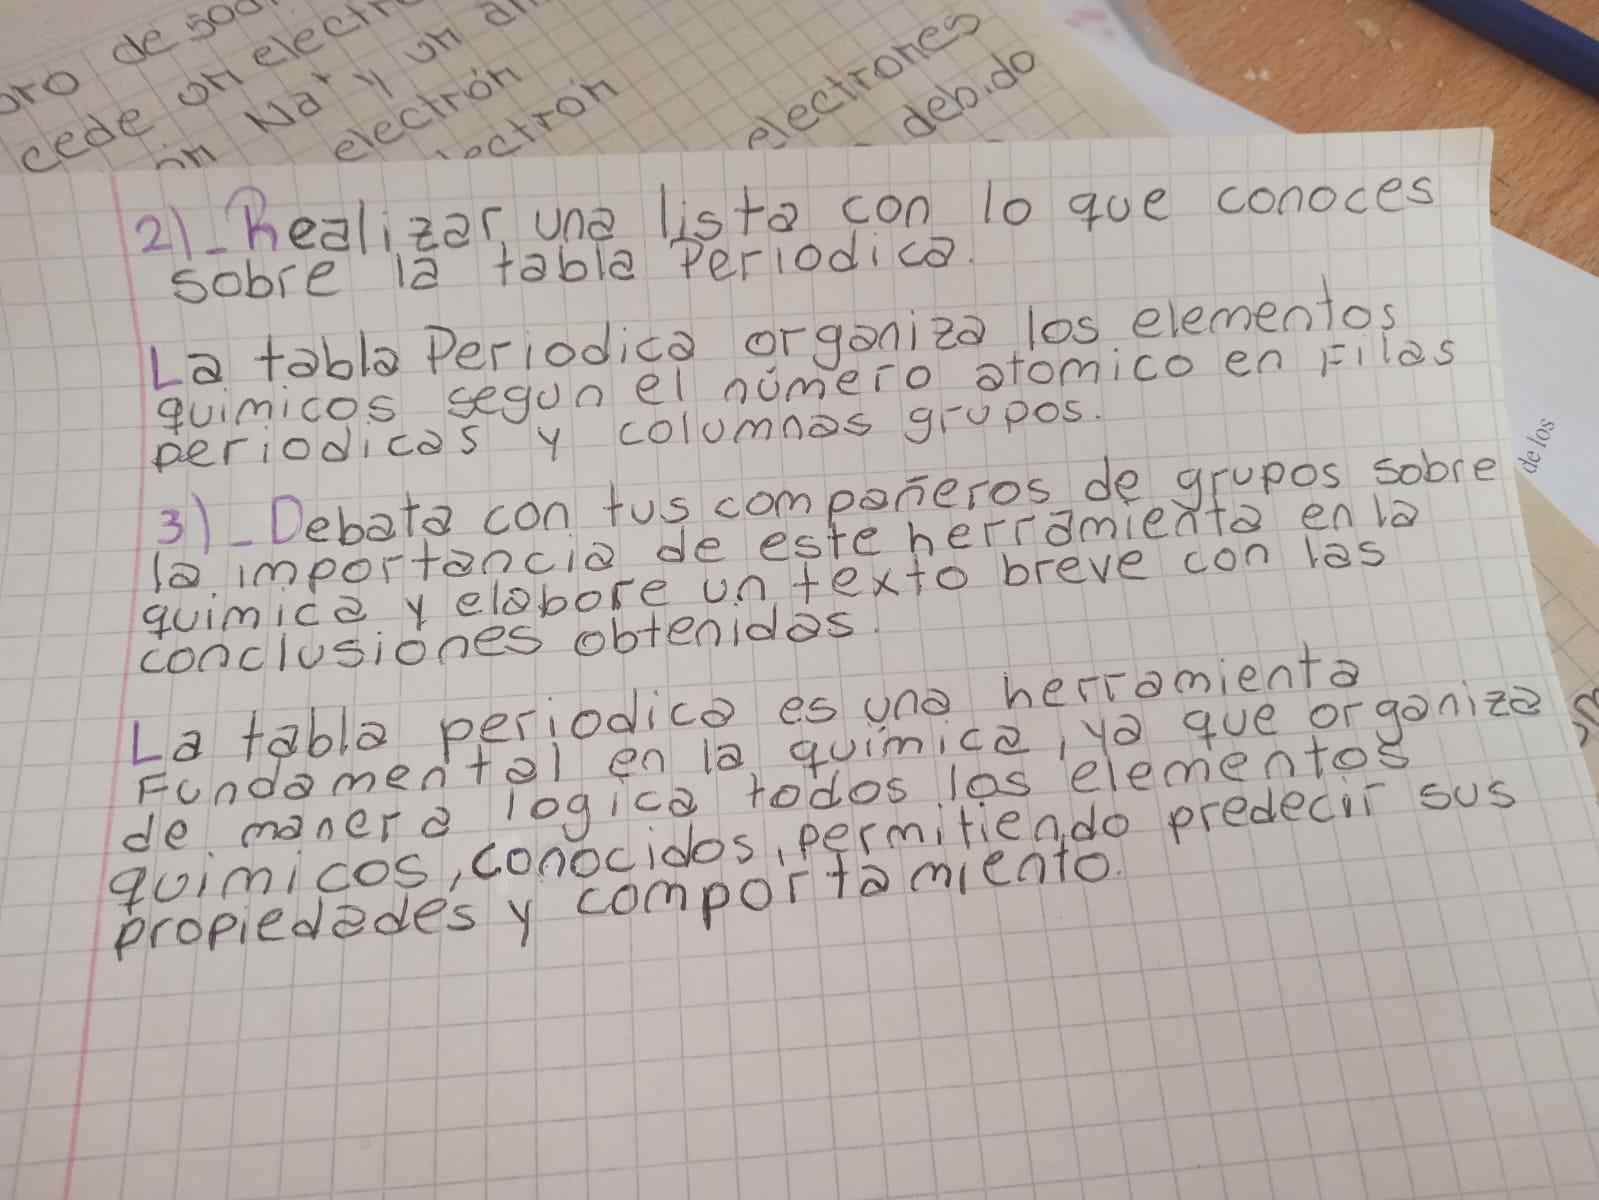 de
cede un
in Na+ y un
electrón
electrones
debido
2)_Realizar una lista con lo que conoces
sobre la tabla Periodica.
La tabla Periodica organiza los elementos
quimicos segun el número atomico en Filas
periodicas y columnas grupos.
3)_Debata con tus compañeros de grupos sobre
la importancia de este herramienta en la
quimica y elabore un texto breve con las
conclusiones obtenidas.
La tabla periodica es una herramienta
Fundamental en la quimica, ya que organiza
de manera logica todos los elementos
quimicos, conocidos, permitiendo predecir sus
propiedades y comportamiento.
de los